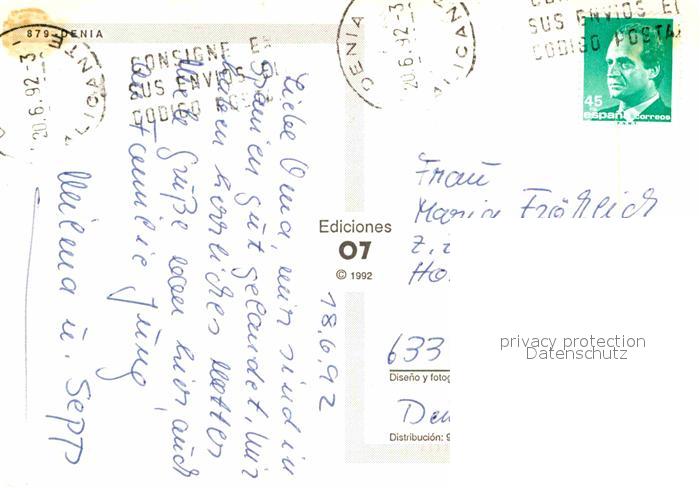 879 - DENIA
DENIA
20.6.92-3
ALICANTE
CONSIGNE EN
SUS ENVIOS EL
CODIGO POSTAL
SUS ENVIOS EL
CODIGO POSTAL
45
españa correos
F.N.M.T.
18.6.92
Liebe Oma, wir sind in
Spanien gut gelandet, wir
haben herrliches Wetter
Viele Grüße von hier auch
an Familie Jung
u. Sepp
Ediciones
07
© 1992
Frau
Maria Fröhlich
Z. Z
Ho
633
Diseño y fotog
Den
Distribución: 9
privacy protection
Datenschutz